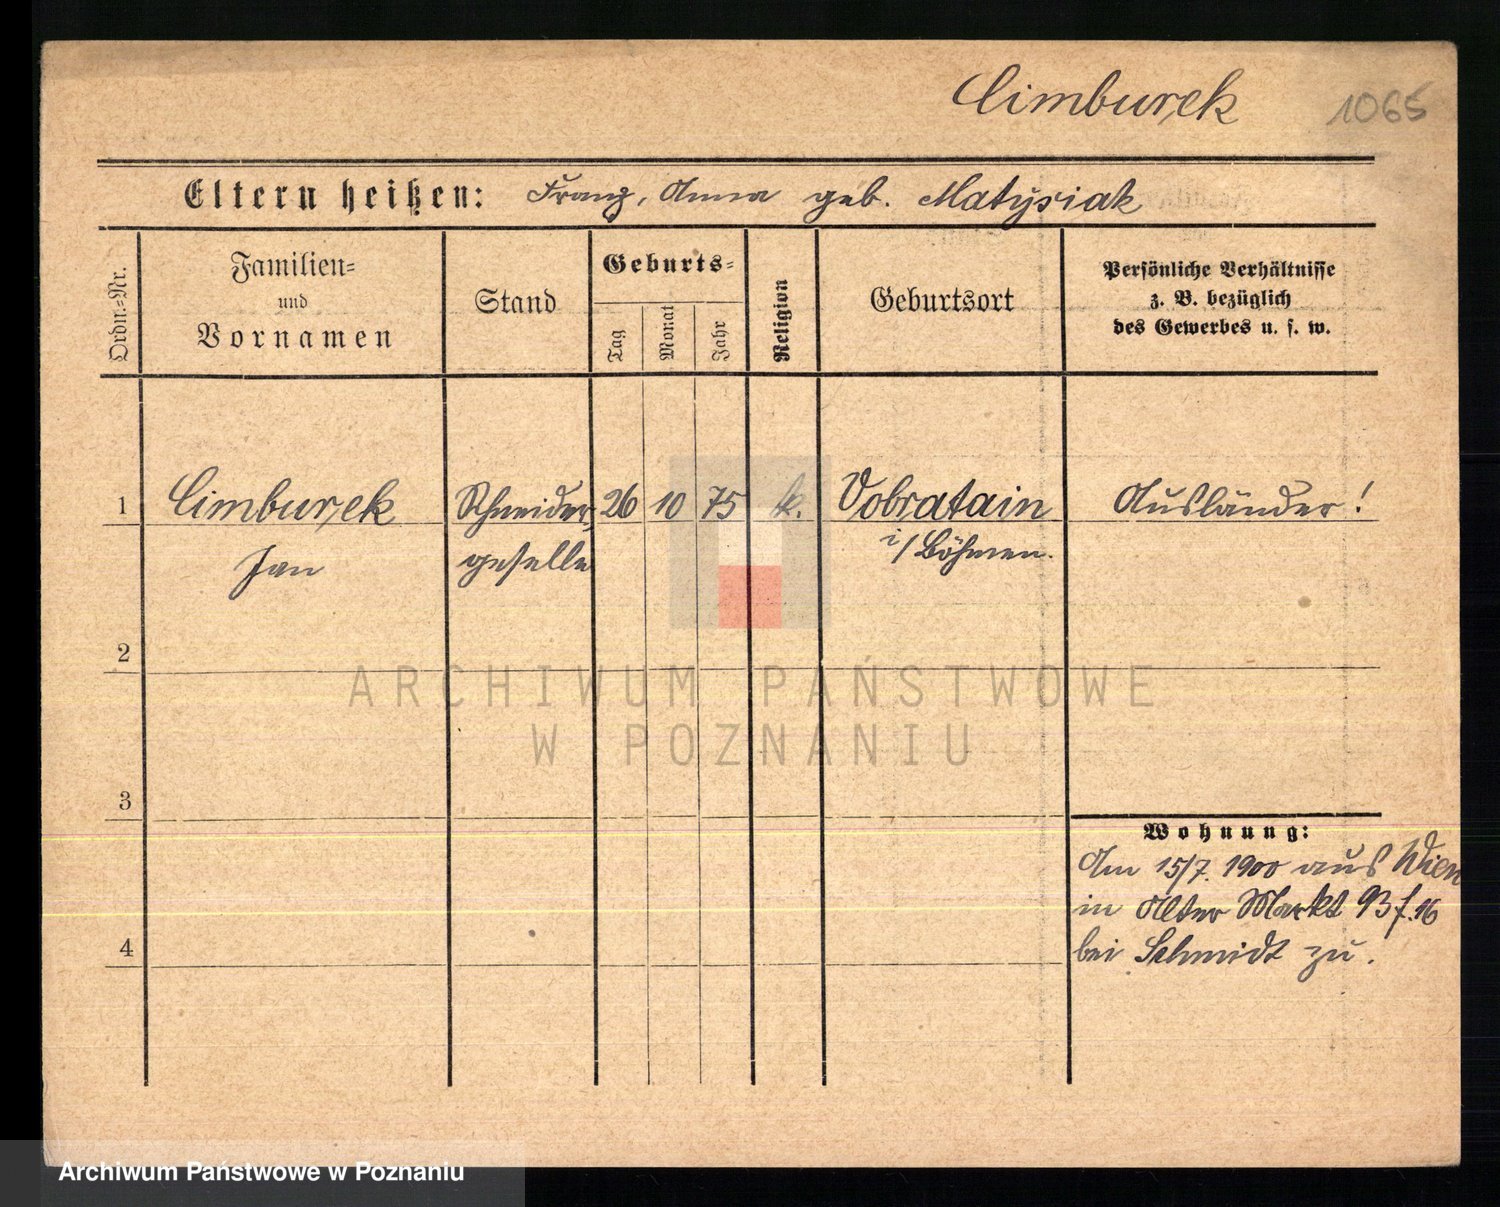 Cimburek 1065
Eltern heißen: Franz, Anna geb. Matysiak
Ordn.=Nr.
Familien=
und
Vornamen
Stand
Geburts=
Tag
Monat
Jahr
Religion
Geburtsort
Persönliche Verhältnisse
z. B. bezüglich
des Gewerbes u. s. w.
1 Cimburek Schneider 26 10 75 k. Vobratain Ausländer!
Jan geselle i/Böhmen.
2
ARCHIWUM PAŃSTWOWE
W POZNANIU
3
Wohnung:
Am 15/7. 1900 aus Wien
in Alter Markt 93 f. 16
4
bei Schmidt zu.
Archiwum Państwowe w Poznaniu